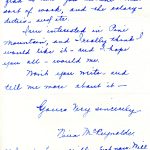 sort of work, and the salary-
duties - and etc.
I am interested in Pine
Mountain, and really think I
would like it - and I hope
you all - would me.
Won't you write and
tell me more about it -
Yours Very sincerely,
McReynolds